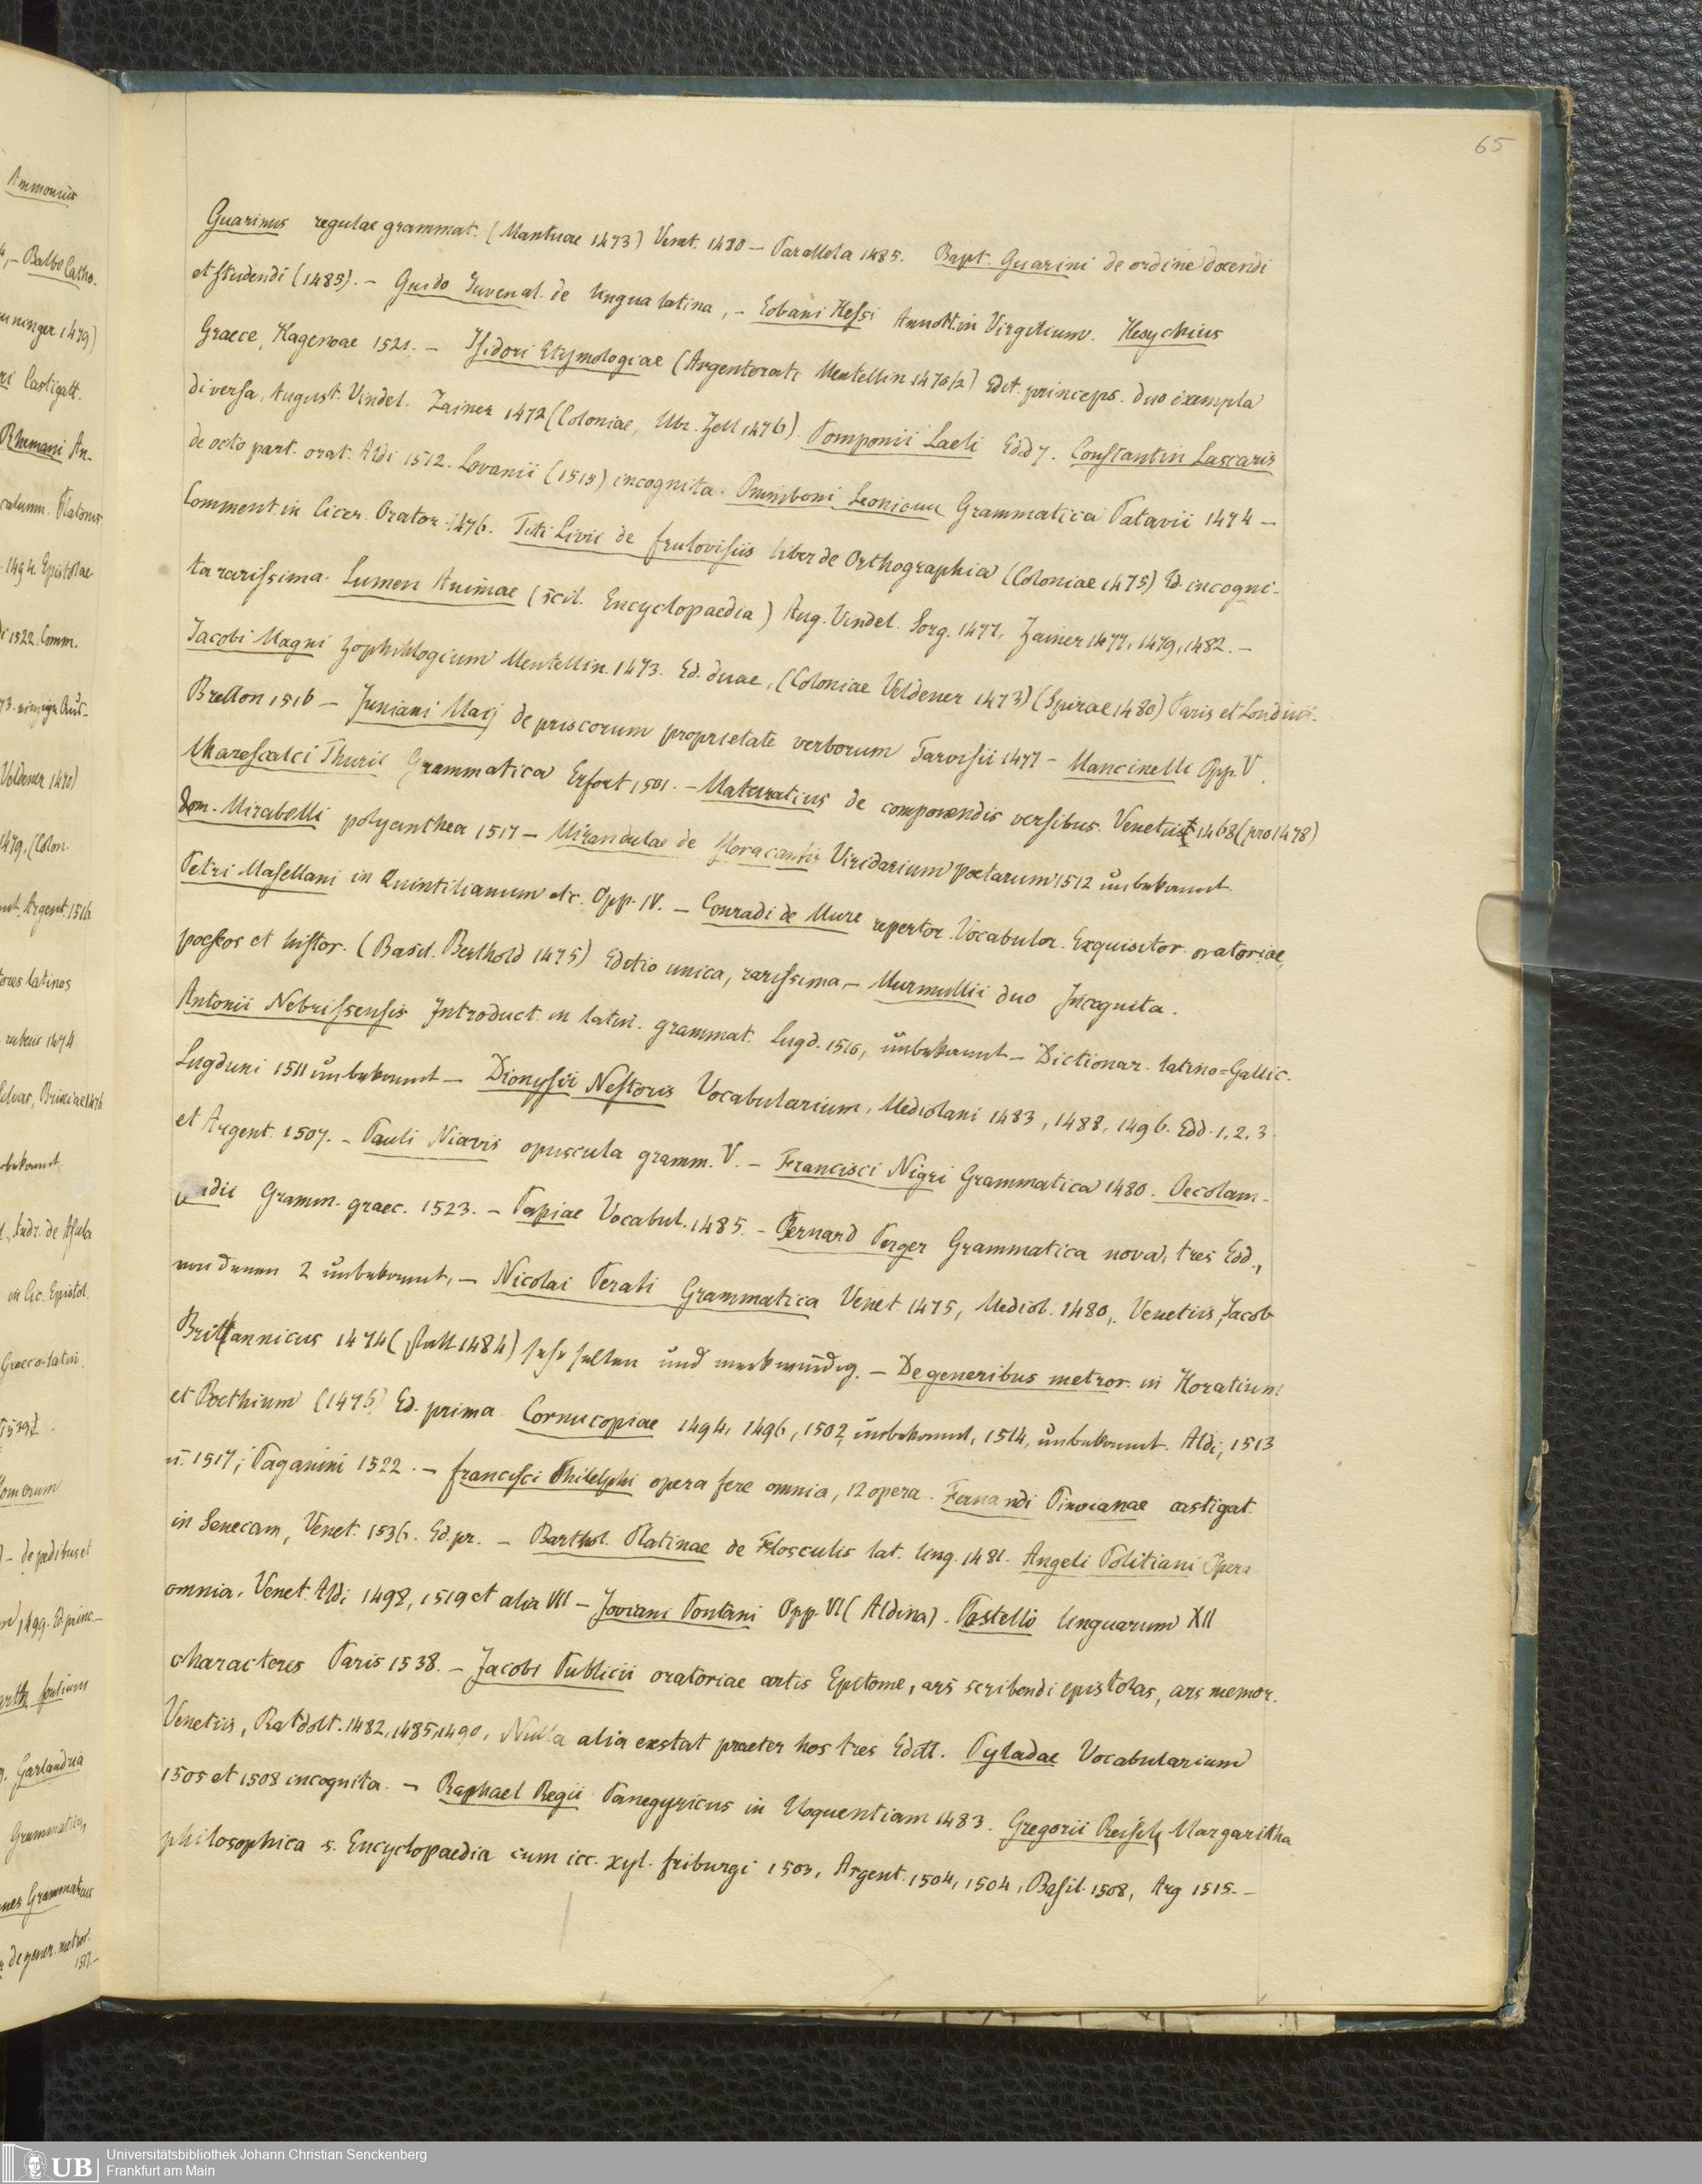 65
Guarinus regulae grammat. (Mantuae 1473) Venet. 1480 – Parallola 1485. Bapt. Guarini de ordine docendi
et studendi (1485). – Guido Juvenal. de lingua latina, – Eobani Hessi Annott. in Virgilium. Hesychius
Graece, Hagenoae 1521. – Isidori Etymologiae (Argentorati Mentellin 1470/2) Edit. princeps. duo exempla
diversa, August. Vindel. Zainer 1472 (Coloniae, Ulr. Zell 1476). Pomponii Laeti Edd 7. Constantin Lascaris
de octo part. orat. Aldi 1512. Lovanii (1515) incognita. Omniboni Leonicen Grammatica Patavii 1474 –
Comment in Cicer. Orator. 1476. Titi Livii de frulovisiis liber de Orthographia (Coloniae 1475) Ed. incogni-
ta rarissima. Lumen Animae (scil. Encyclopaedia) Aug. Vindel. Sorg. 1477, Zainer 1477, 1479, 1482. –
Jacobi Magni Zophillogium Mentellin. 1473. Ed. duae, (Coloniae Veldener 1473) (Spirae 1480) Paris et Londini.
Bretton 1516 – Juniani Maij de priscorum proprietate verborum Tarvisii 1477 – Mancinelli Opp. V.
Marescalci Thurii Grammatica Erfort 1501. – Maturatius de componendis versibus. Venetiis 1468 (pro 1478)
Dom. Mirabelli polyanthea 1517 – Mirandulae de floracantis Viridarium poetarum 1512 unbekannt.
Petri Masellani in Quintilianum etc. Opp. IV. – Conradi de Mure repertor. Vocabulor. Exquisitor. oratoriae,
poeseos et histor. (Basil. Berthold 1475) Editio unica, rarissima, – Murmullii duo Incognita.
Antonii Nebrissensis Introduct. in latin. grammat. Lugd. 1516, unbekannt – Dictionar. latino=Gallic.
Lugduni 1511 unbekannt – Dionysii Nestoris Vocabularium, Mediolani 1483, 1488, 1496. Edd. 1. 2. 3.
et Argent. 1507. – Pauli Niavis opuscula gramm. V. – Francisci Nigri Grammatica 1480. Oecolam-
padii Gramm. graec. 1523. – Papiae Vocabul. 1485. – Bernard Perger Grammatica nova, tres Edd.,
von denen 2 unbekannt, – Nicolai Perati Grammatica Venet 1475, Mediol. 1480, Venetiis, Jacob
Brittannicus 1474 (statt 1484) sehr selten und merkwürdig. – De generibus metror. in Horatium
et Boethium (1475) Ed. prima Cornucopiae 1494, 1496, 1502, unbekannt, 1514, unbekannt. Aldi, 1513
u. 1517; Paganini 1522. – francisci Philelphi opera fere omnia, 12 opera. Fernandi Pincianae castigat.
in Senecam, Venet. 1536. Ed. pr. – Barthol. Platinae de Flosculis lat. ling. 1481. Angeli Politiani Opera
omnia. Venet. Aldi 1498, 1519 et alia VIII – Joviani Pontani Opp. VI (Aldina). Postello linguarum XII
characteres Paris 1538. – Jacobi Publicii oratoriae artis Epitome, ars scribendi epistolas, ars memor.
Venetiis, Ratdolt. 1482, 1485, 1490, Nulla alia exstat praeter hos tres Editt. Pyladae Vocabularium
1505 et 1508 incognita. – Raphael Regii Panegyricus in Eloquentiam 1483. Gregorii Reisch Margaritha
philosophica s. Encyclopaedia cum icc. xyl. friburgi 1503, Argent. 1504, 1504, Basil. 1508, Arg 1515. –
UB
Universitätsbibliothek Johann Christian Senckenberg
Frankfurt am Main